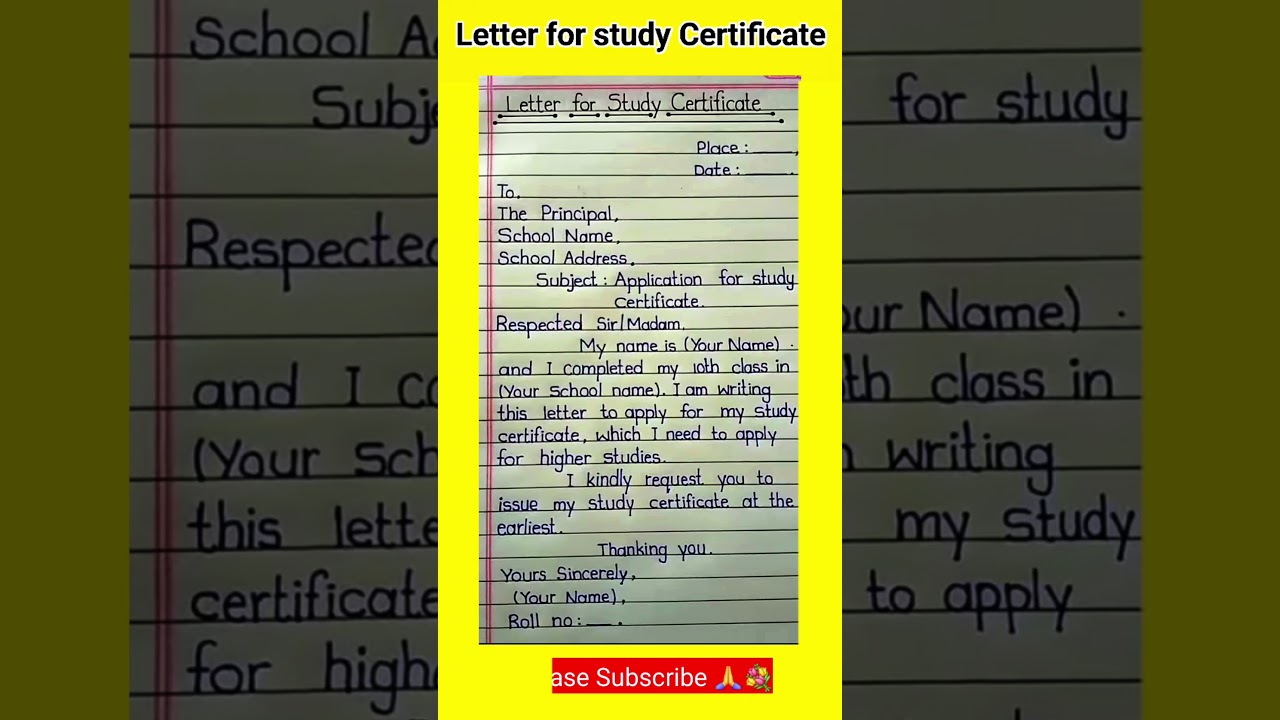 Letter for study Certificate
Letter for Study Certificate
Place : ____,
Date : ____.
To,
The Principal,
School Name,
School Address.
Subject : Application for study
certificate.
Respected Sir/Madam,
My name is (Your Name) .
and I completed my 10th class in
(Your School name). I am writing
this letter to apply for my study
certificate, which I need to apply
for higher studies.
I kindly request you to
issue my study certificate at the
earliest.
Thanking you.
Yours Sincerely,
(Your Name),
Roll no : ___ .
ase Subscribe 🙏💐